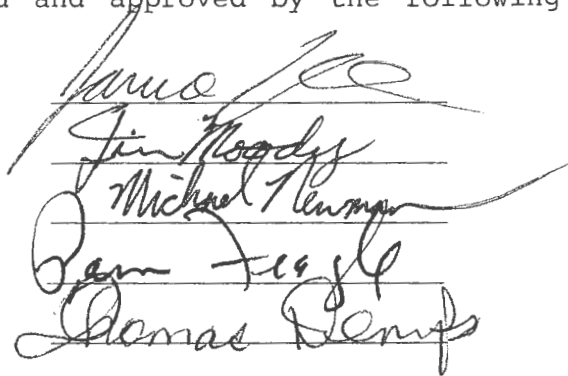 and approved by the following
Lee
Jim Moody
Michael Newman
Pam Feagle
Thomas Demps